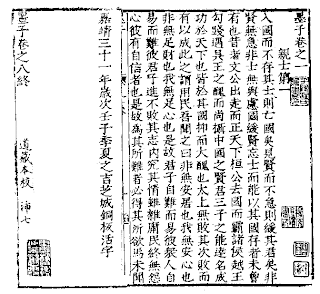 墨子卷之一
親士第一
入國而不存其士則亡國矣見賢而不急則緩其君矣非
賢無急非士無與慮國緩賢忘士而能以其國存者未曾
有也昔者文公出走而正天下桓公去國而霸諸侯越王
勾踐遇吳王之醜而尚攝中國之賢君三子之能達名成
功於天下也皆於其國抑而大醜也太上無敗其次敗而
有以成此之謂用民吾聞之曰非無安居也我無安心也
非無足財也我無足心也是故君子自難而易彼衆人自
易而難彼君子進不敗其志內究其情雖雜庸民終無怨
心彼有自信者也是故為其所難者必得其所欲焉未聞
嘉靖三十一年歲次壬子季夏之吉芝城銅板活字
墨子卷之八終
道藏本校